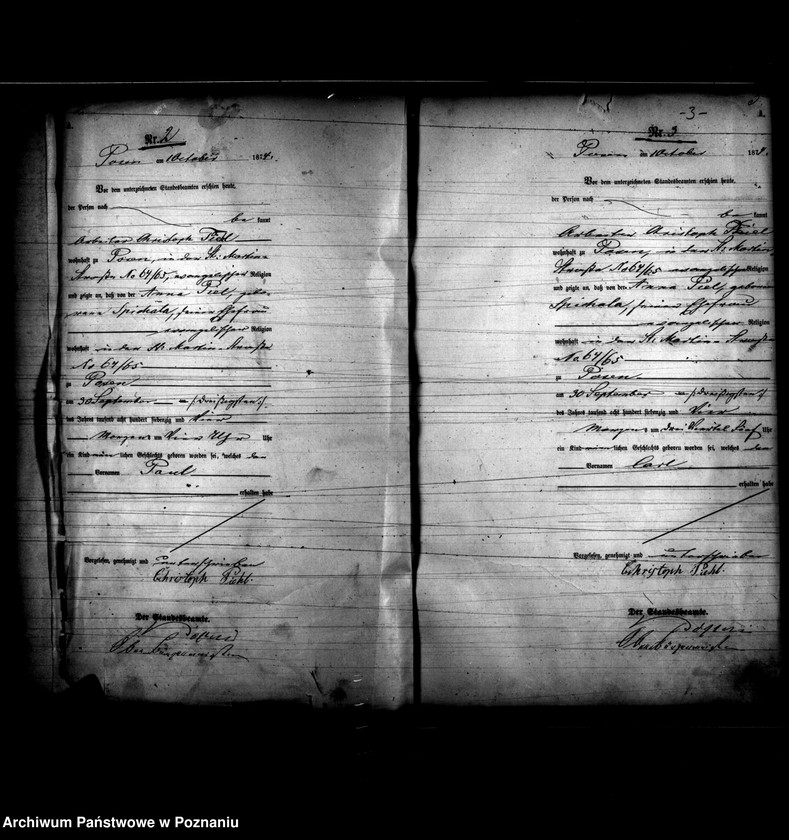 Nr. 2
Posen am 1 October 1874.
Vor dem unterzeichneten Standesbeamten erschien heute,
der Person nach
be kannt
Arbeiter Christoph Piel
wohnhaft zu Posen, in der St. Martin
Straße No 64/65, evangelischer Religion
und zeigte an, daß von der Anna Piel, gebo-
rene Spichala, seiner Ehefrau
evangelischer Religion
wohnhaft in der St. Martin-Straße
No 64/65
zu Posen
am 30 September (dreißigsten)
des Jahres tausend acht hundert siebenzig und vier
Morgens um vier Uhr Uhr
ein Kind männlichen Geschlechts geboren worden sei, welches den
Vornamen Paul
erhalten habe
Vorgelesen, genehmigt und unterschrieben
Christoph Piehl.
Der Standesbeamte.
-3-
Nr. 3
Posen am 1 October 1874.
Vor dem unterzeichneten Standesbeamten erschien heute,
der Person nach
be kannt
Arbeiter Christoph Piel
wohnhaft zu Posen, in der St. Martin-
Straße No 64/65 evangelischer Religion
und zeigte an, daß von der Anna Piel, geborene
Spichala, seiner Ehefrau
evangelischer Religion
wohnhaft in der St. Martin-Straße
No 64/65
zu Posen
am 30 September (dreißigsten)
des Jahres tausend acht hundert siebenzig und vier
Morgens um drei Viertel fünf Uhr
ein Kind männlichen Geschlechts geboren worden sei, welches den
Vornamen Carl
erhalten habe
Vorgelesen, genehmigt und unterschrieben
Christoph Piehl.
Der Standesbeamte.
Archiwum Państwowe w Poznaniu